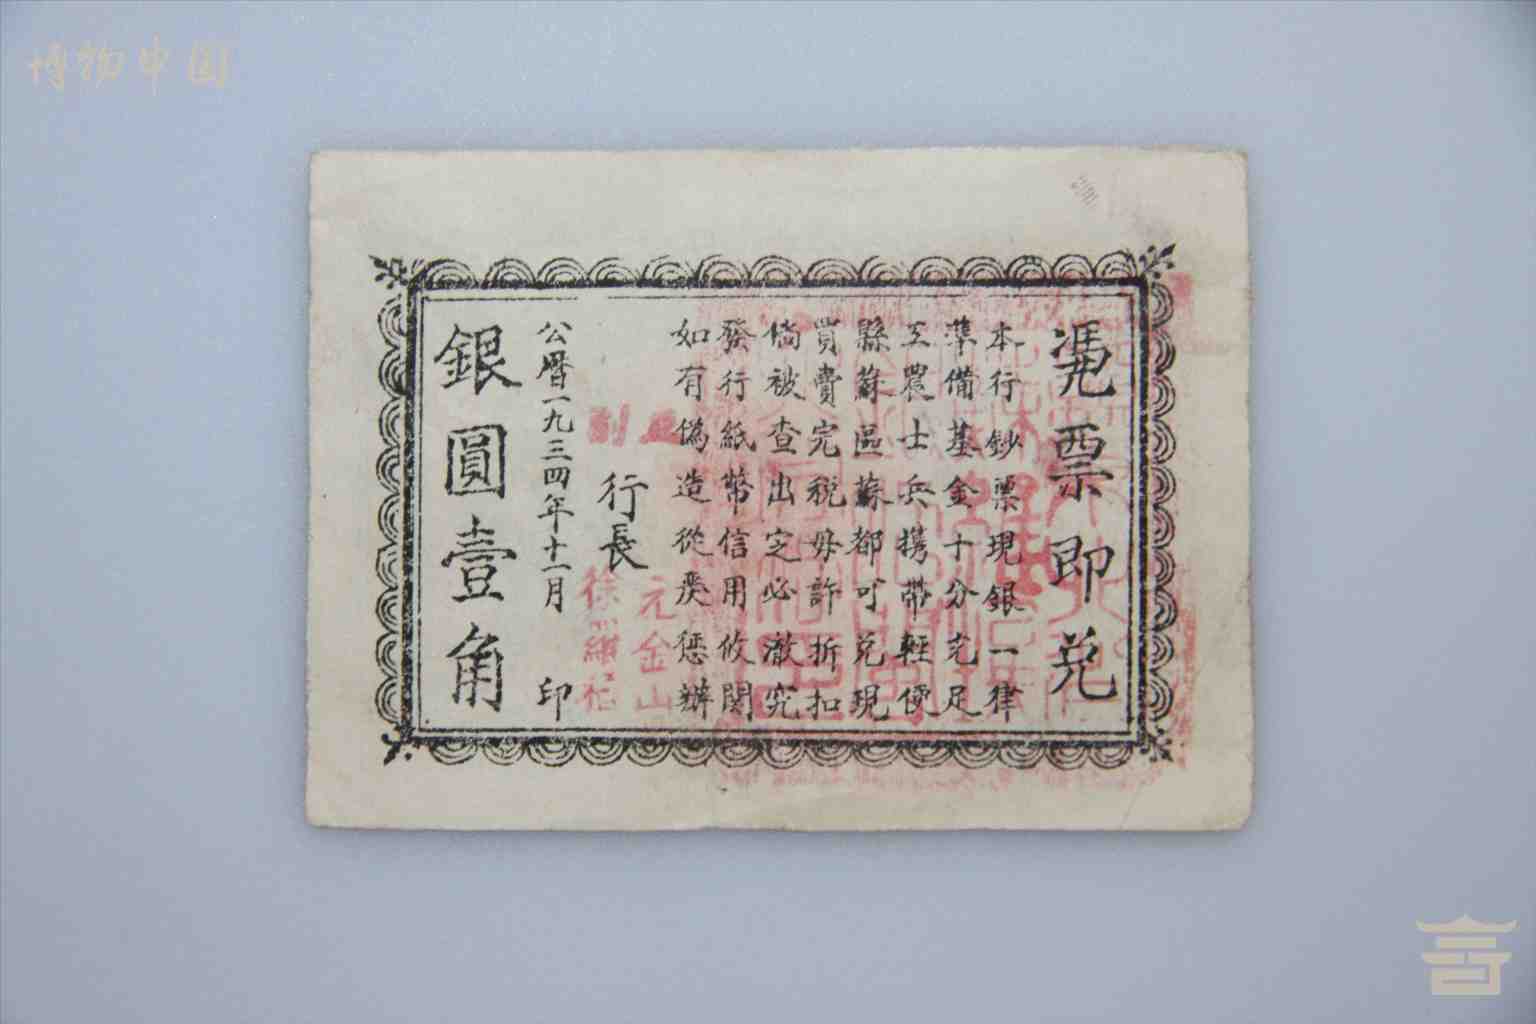 博物中国
凴票即兑
本行鈔票現銀一律
準備基金十分充足
工農士兵攜帶輕便
縣蘇區蘇都可兑現
買賣完税毋許折扣
倘被查出定必澈究
發行紙幣信用攸関
如有偽造從嚴懲辦
正副行長
元金山
徐
公曆一九三四年十一月印
銀圓壹角